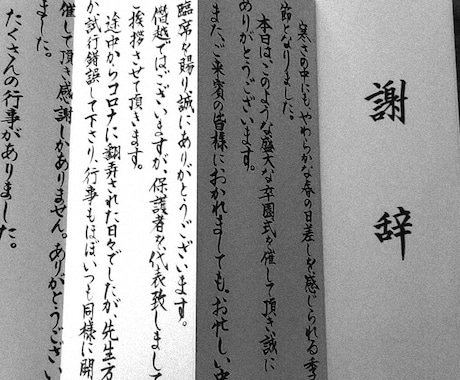 謝辞
寒さの中にも、やわらかな春の日差しを感じられる季
節となりました。
本日はこのような盛大な卒園式を催して頂き、誠に
ありがとうございます。
また、ご来賓の皆様におかれましても、お忙しい中
臨席を賜り誠にありがとうございます。
僭越ではございますが、保護者を代表致しまして
ご挨拶させて頂きます。
途中からコロナに翻弄された日々でしたが、先生方
が試行錯誤して下さり、行事もほぼいつも同様に開
催して頂き感謝しかありません。ありがとうござい
ました。
たくさんの行事がありました。